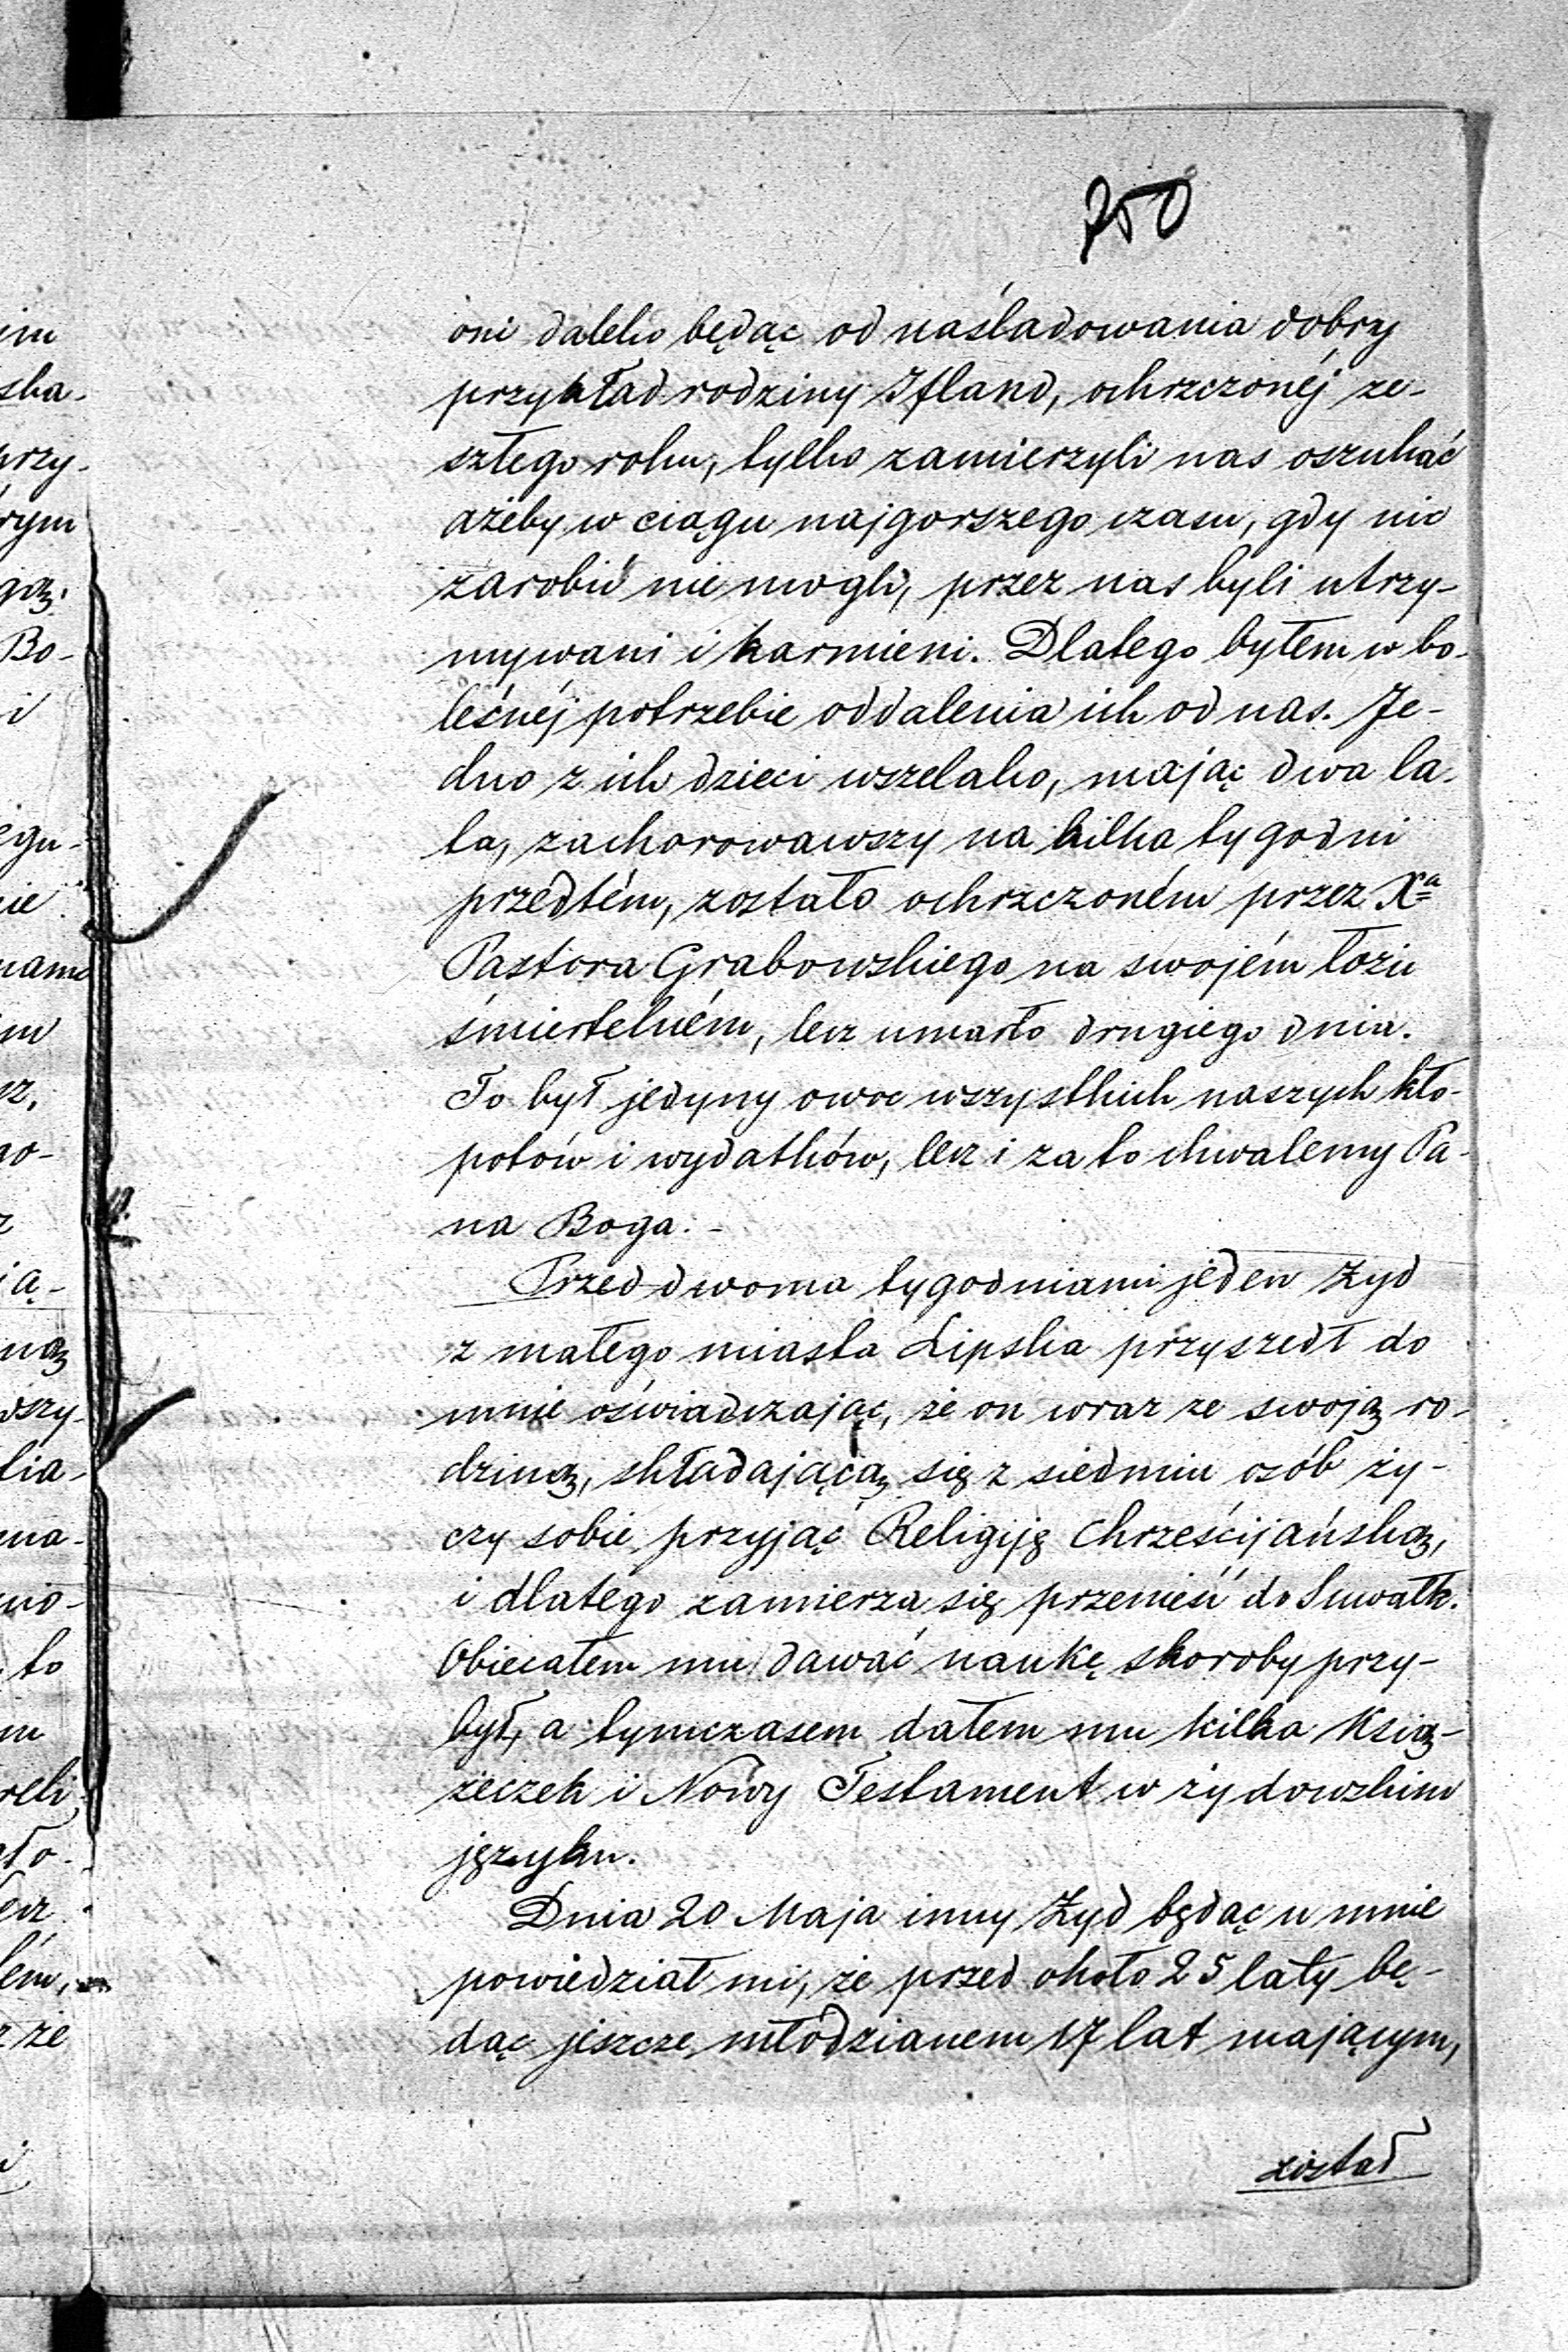 250
oni daleko będąc od naśladowania dobry
przykład rodziny Ifland, ochrzczonéj ze-
szłego roku, tylko zamierzyli nas oszukać
ażeby w ciągu najgorszego czasu, gdy nic
zarobić nie mogli, przez nas byli utrzy-
mywani i karmieni. Dlatego byłem w bo-
leśnéj potrzebie oddalenia ich od nas. Je-
dno z ich dzieci wszelako, mając dwa la-
ta, zachorowawszy na kilka tygodni
przedtém, zostało ochrzczoném przez Xa
Pastora Grabowskiego na swojém łożu
śmiertelném, lecz umarło drugiego dnia.
To był jedyny owoc wszystkich naszych kło-
potów i wydatków, lecz i za to chwalemy Pa-
na Boga. -
Przed dwoma tygodniami jeden Żyd
z małego miasta Lipska przyszedł do
mnie oświadczając, że on wraz ze swoją ro-
dziną, składającą się z siedmiu osób ży-
czy sobie przyjąć Religiję Chrześcijańską,
i dlatego zamierza się przenieść do Suwałk.
Obiecałem mu dawać naukę skoroby przy-
był, a tymczasem dałem mu kilka Ksią-
żeczek i Nowy Testament w żydowskim
języku.
Dnia 20 Maja inny Żyd będąc u mnie
powiedział mi, że przed około 25 laty bę-
dąc jeszcze młodzianem 17 lat mającym,
został